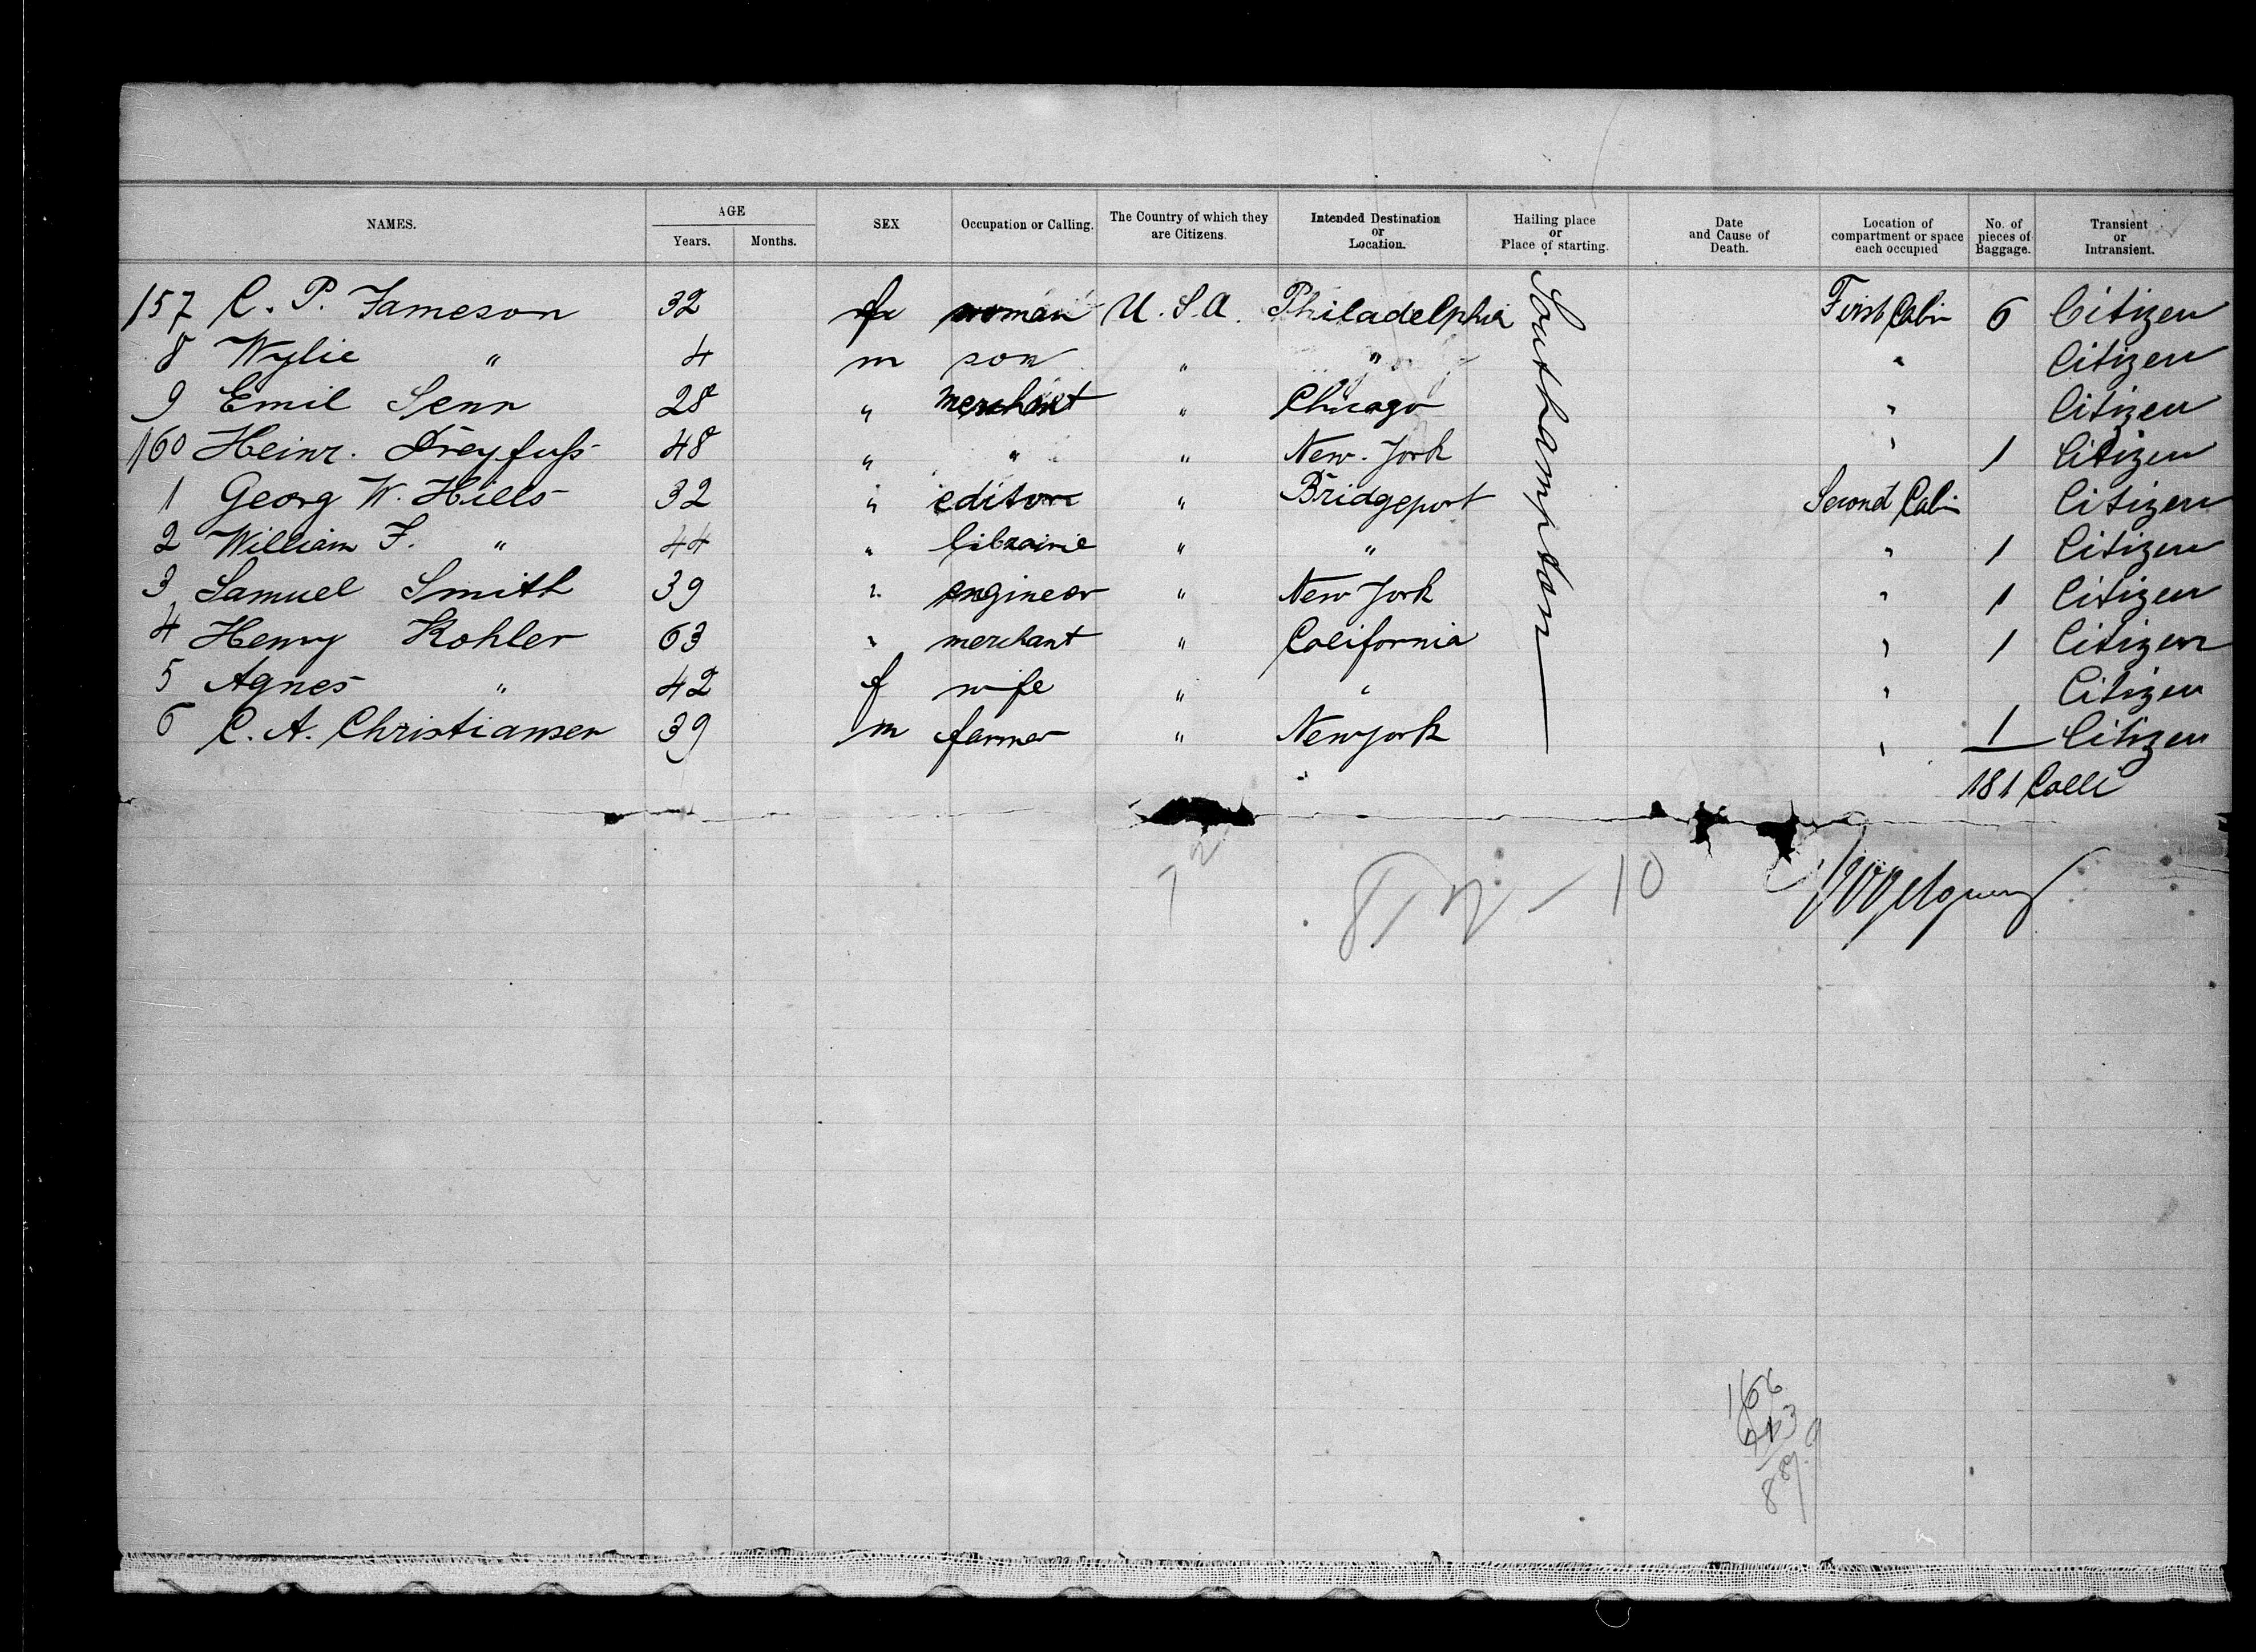 NAMES. AGE Years. Months. SEX Occupation or Calling. The Country of which they are Citizens. Intended Destination or Location. Hailing place or Place of starting. Date and Cause of Death. Location of compartment or space each occupied No. of pieces of Baggage. Transient or Intransient.
157 C. P. Jameson 32 f woman U.S.A. Philadelphia Southampton First Cabin 6 Citizen
8 Wylie " 4 m son " " " Citizen
9 Emil Senn 28 " merchant " Chicago " Citizen
160 Heinr. Dreyfuß 48 " " " New-York " 1 Citizen
1 Georg W. Hills 32 " editor " Bridgeport Second Cabin Citizen
2 William F. " 44 " librairie " " " 1 Citizen
3 Samuel Smith 39 " engineer " New York " 1 Citizen
4 Henry Kohler 63 " merchant " California " 1 Citizen
5 Agnes " 42 f wife " " " Citizen
6 C. A. Christiansen 39 m farmer " New york " 1 Citizen
181 Colli
10
166